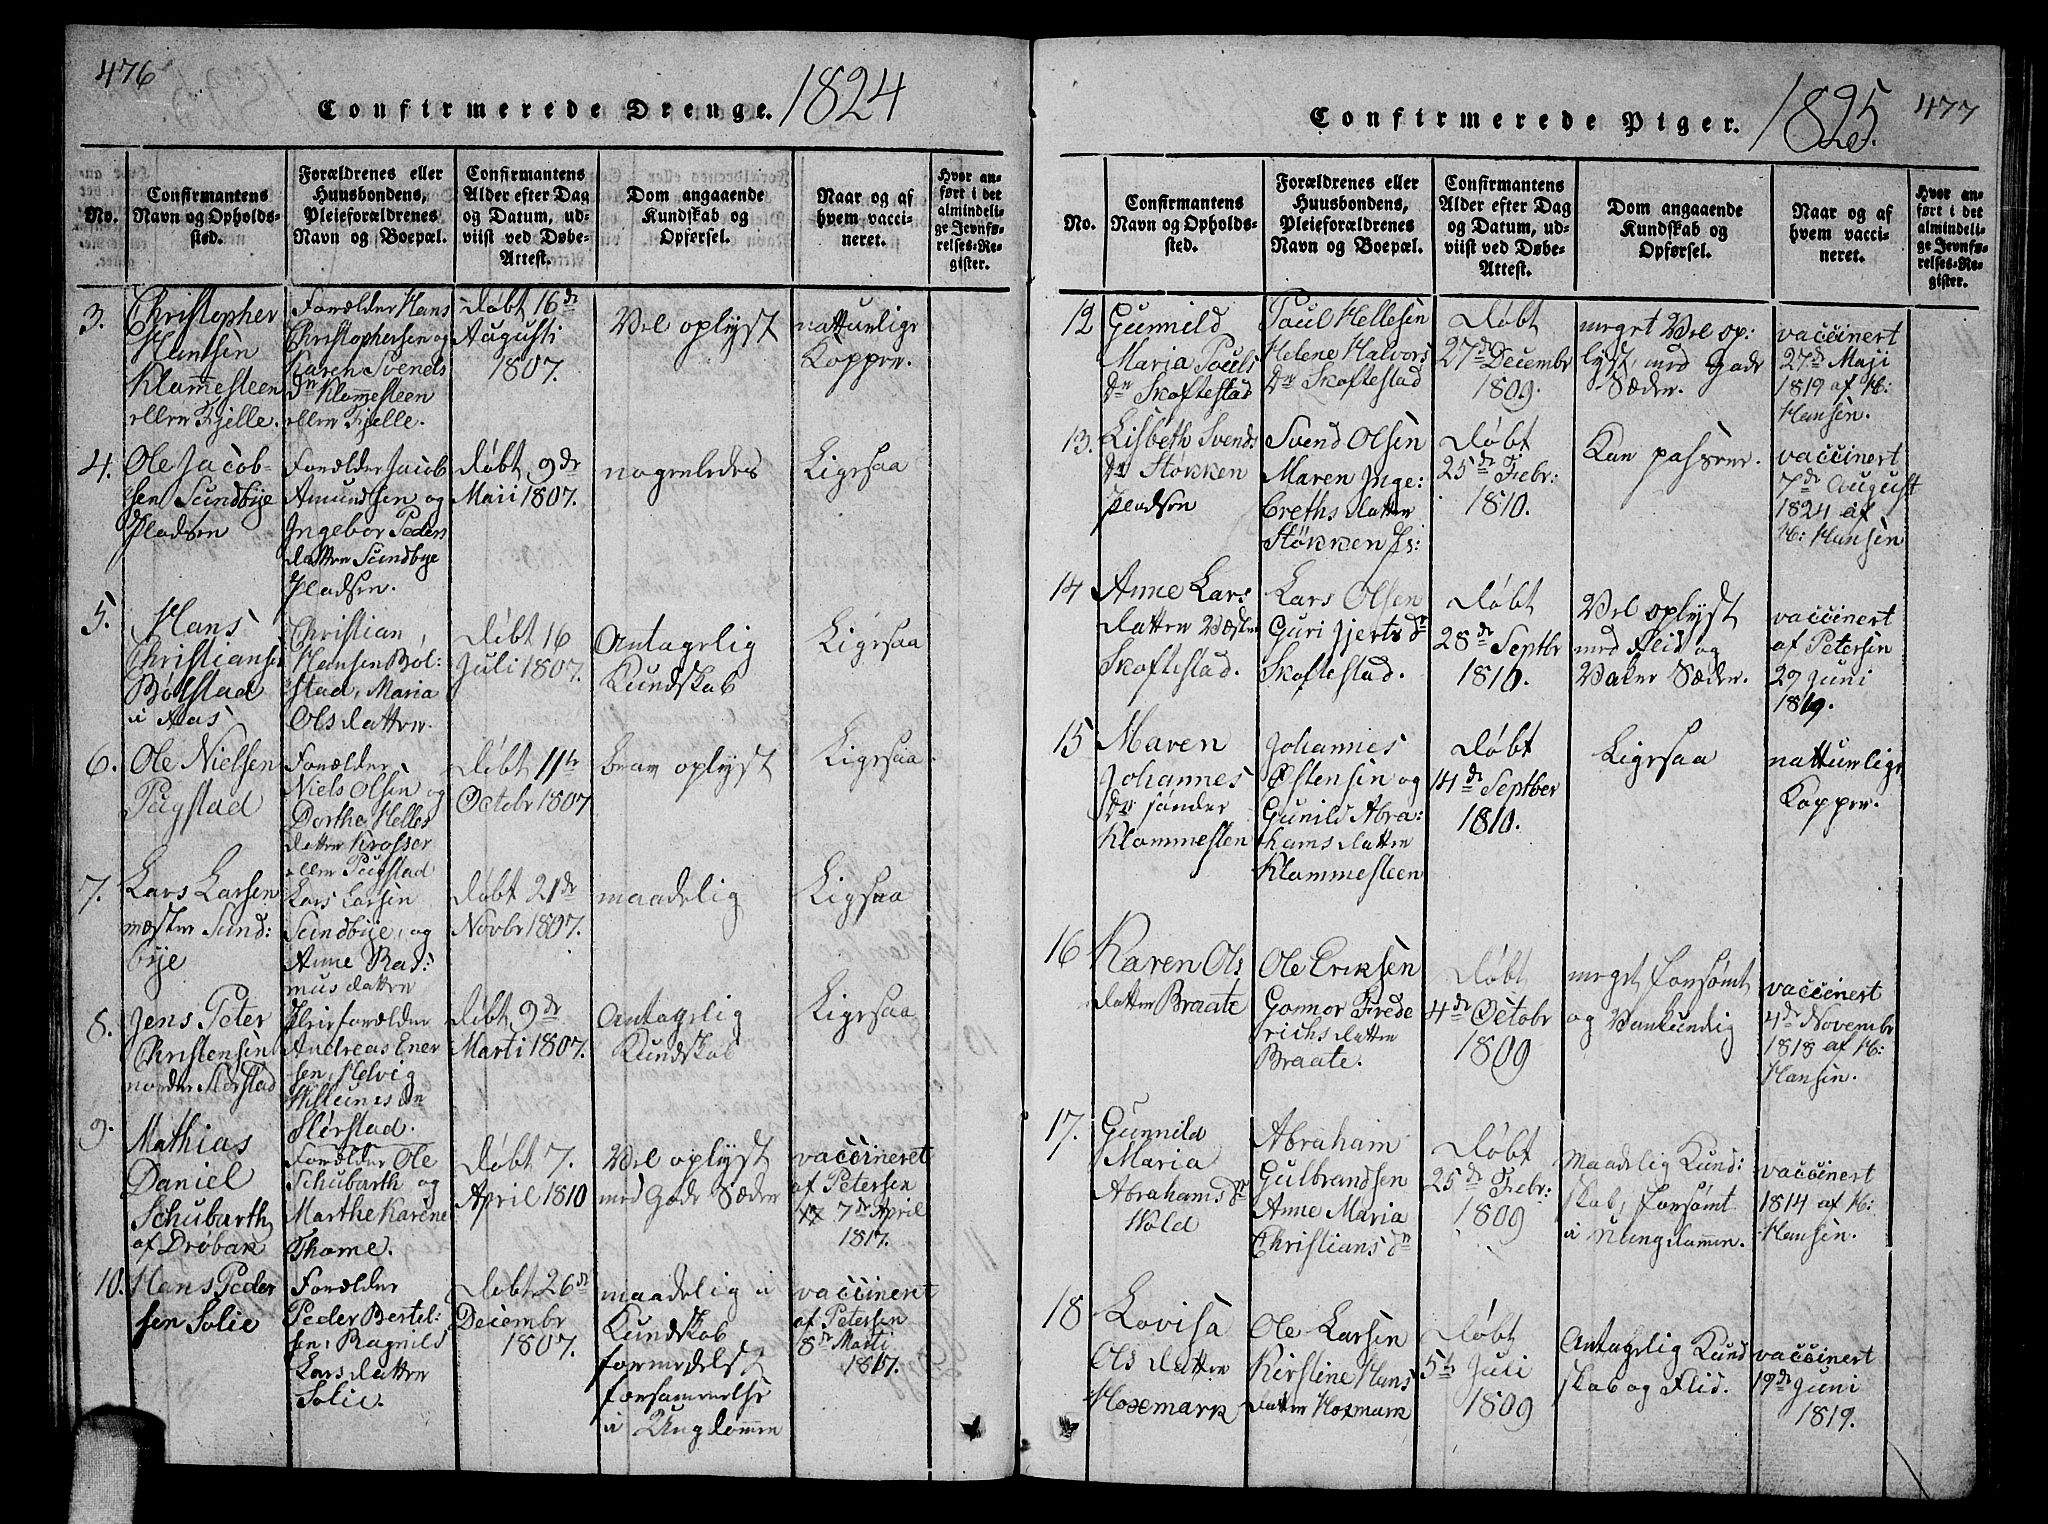 476
Confirmerede Drenge. 1824
No.
Confirmantens
Navn og Opholds-
sted.
Forældrenes eller
Huusbondens,
Pleieforældrenes
Navn og Boepæl.
Confirmantens
Alder efter Dag
og Datum, ud-
viist ved Døbe-
Attest.
Dom angaaende
Kundskab og
Opførsel.
Naar og af
hvem vacci-
neret.
Hvor an-
ført i det
almindeli-
ge Jevnfø-
relses-Re-
gister.
3.
Christopher
Hansen
Klommesteen
eller Fjelle.
Forælder Hans
Christophersen og
Karen Svends
dr Klommesteen
eller Fjelle.
Døbt 16de
Augusti
1807.
Vel oplyst
natturlige
Kopper.
4.
Ole Jacob-
sen Sundbye
Pladsen
Forælder Jacob
Amundsen og
Ingebor Peders
datter Sundbye
Pladsen.
Døbt 9de
Maii 1807.
nogenledes
Ligesaa
5.
Hans
Christiansen
Bølstad
i Aas
Christian
Hansen Bol-
stad, Maria
Olsdatter.
Døbt 16
Juli 1807.
Antagelig
Kundskab
Ligesaa
6.
Ole Nielsen
Pugstad
Forælder
Niels Olsen og
Dorthe Helles
datter Krosser
eller Pugstad
Døbt 11te
Octobr 1807
brav oplyst
Ligesaa.
7.
Lars Larsen
næster Sund:
bye
Lars Larsen
Sundbye, og
Anne Ras:
musdatter
Døbt 21de
Novbr 1807.
maadelig
Ligesaa
8.
Jens Peter
Christensen
norder Storstad
Pleieforælder
Andreas Ener
sen, Helvig
Willumsdr
Storstad.
Døbt 9de
Marti 1807.
Antagelig
Kundskab
Ligesaa
9.
Mathias
Daniel
Schubarth
af Drøbak
Forælder Ole
Schubarth og
Marthe Karene
Thome.
Døbt 7.
April 1810
Vel oplyst
med Gode Sæder
vaccineret
af Petersen
7de April
1817.
10.
Hans Peder
sen Solie
Forælder
Peder Bertel-
sen, Ragnild
Larsdatter
Solie.
Døbt 26de
Decembr
1807.
maadelig i
Kundskab
formedelst
forsømmelse
i Ungdommen
vaccinert
af Petersen
8de Marti
1817.
477
Confirmerede Piger. 1825
No.
Confirmantens
Navn og Opholds-
sted.
Forældrenes eller
Huusbondens,
Pleieforældrenes
Navn og Boepæl.
Confirmantens
Alder efter Dag
og Datum, ud-
viist ved Døbe-
Attest.
Dom angaaende
Kundskab og
Opførsel.
Naar og af
hvem vacci-
neret.
Hvor an-
ført i det
almindeli-
ge Jevnfø-
relses-Re-
gister.
12
Gunnild
Maria Pouls
dr Skoftestad
Poul Hellesen
Helene Halvors
dr Skoftestad
Døbt
27de Decembr
1809.
meget Vel op:
lyst, med Gode
Sæder.
vaccinert
27de Maji
1819 af H:
Hansen.
13.
Lisbeth Svends
dr Støkken
Pladsen
Svend Olsen
Maren Inge:
brethsdatter
Støkken Ps:
Døbt
25de Febr:
1810.
Kan passere.
vaccinert
7de August
1824 af
H: Hansen
14
Anne Lars
datter Væster
Skoftestad.
Lars Olsen
Guri Gjertsdr
Skoftestad.
Døbt
28de Septbr
1810.
Vel oplyst
med Flid og
Vakre Sæder.
vaccinert
af Petersen
29 Juni
1819.
15
Maren
Johannes
dr sønder
Klommesten
Johannes
Østensen og
Gunild Abra:
hamsdatter
Klommesteen
Døbt
14de Septber
1810.
Ligesaa
natturlige
Kopper.
16
Karen Ols
datter Braate
Ole Eriksen
Gonnor Frede
richsdatter
Braate.
Døbt
4de Octobr
1809
meget forsømt
og Vankundig
vaccinert
4de Novembr
1818 af H:
Hansen.
17.
Gunnild
Maria
Abrahamsdr
Wold
Abraham
Gulbrandsen
Anne Maria
Christiansdr
Døbt
25de Febr:
1809
Maadelig Kund:
skab, forsømt
i Ungdommen.
vaccinert
1814 af H:
Hansen.
18
Lovisa
Olsdatter
Hoxemark
Ole Larsen
Kirstine Hans
datter Hoxmark
Døbt
5te Juli
1809
Antagelig Kund
skab og Flid.
vaccinert
19de Juni
1819.